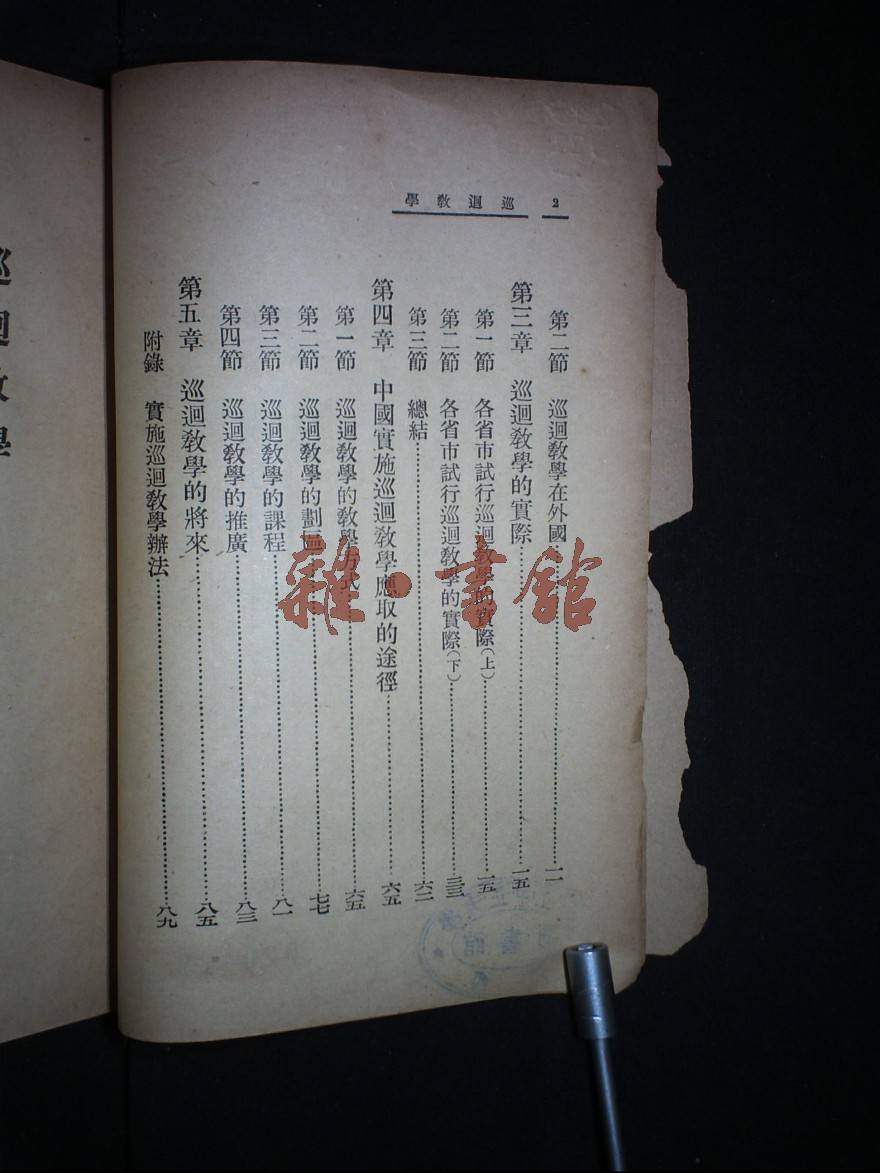 2 巡迴敎學
第二節 巡迴敎學在外國……一一
第三章 巡迴敎學的實際……一五
第一節 各省市試行巡迴敎學的實際(上)……一五
第二節 各省市試行巡迴敎學的實際(下)……三三
第三節 總結……六二
第四章 中國實施巡迴敎學應取的途徑……六五
第一節 巡迴敎學的敎學方式……六五
第二節 巡迴敎學的劃區……七七
第三節 巡迴敎學的課程……八一
第四節 巡迴敎學的推廣……八三
第五章 巡迴敎學的將來……八五
附錄 實施巡迴敎學辦法……八九
巡迴敎學
雜·書館
書館